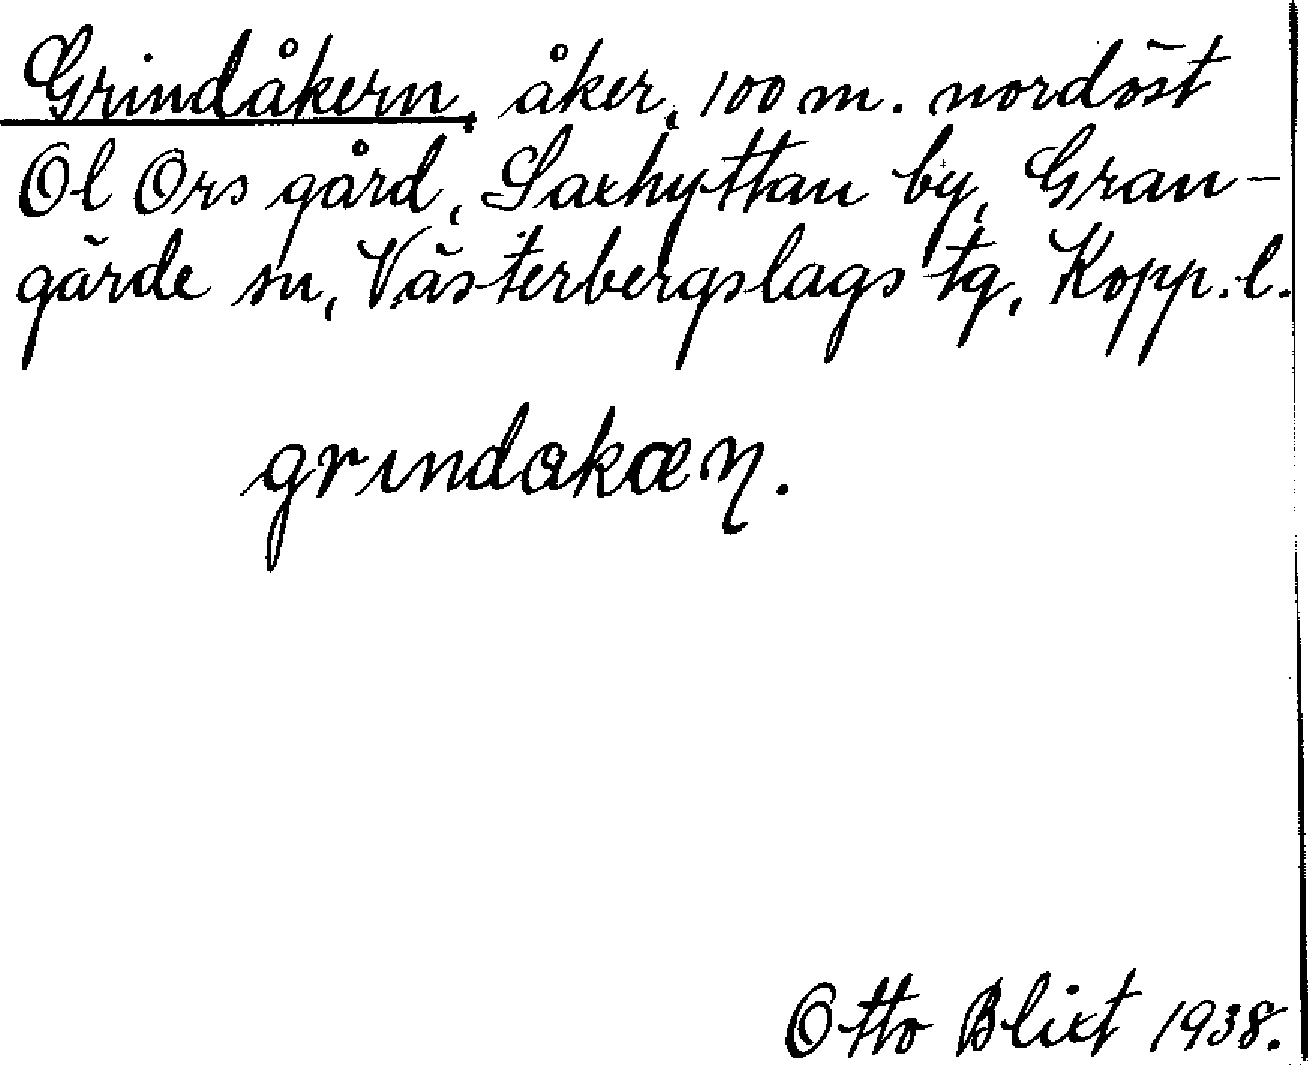 Grindåkern, åker, 100 m. nordöst
Ol Ors gård, Saxhyttan by, Gran-
gärde sn, Västerbergslags tg, Kopp. l.
grindakæŋ.
Otto Blixt 1938.